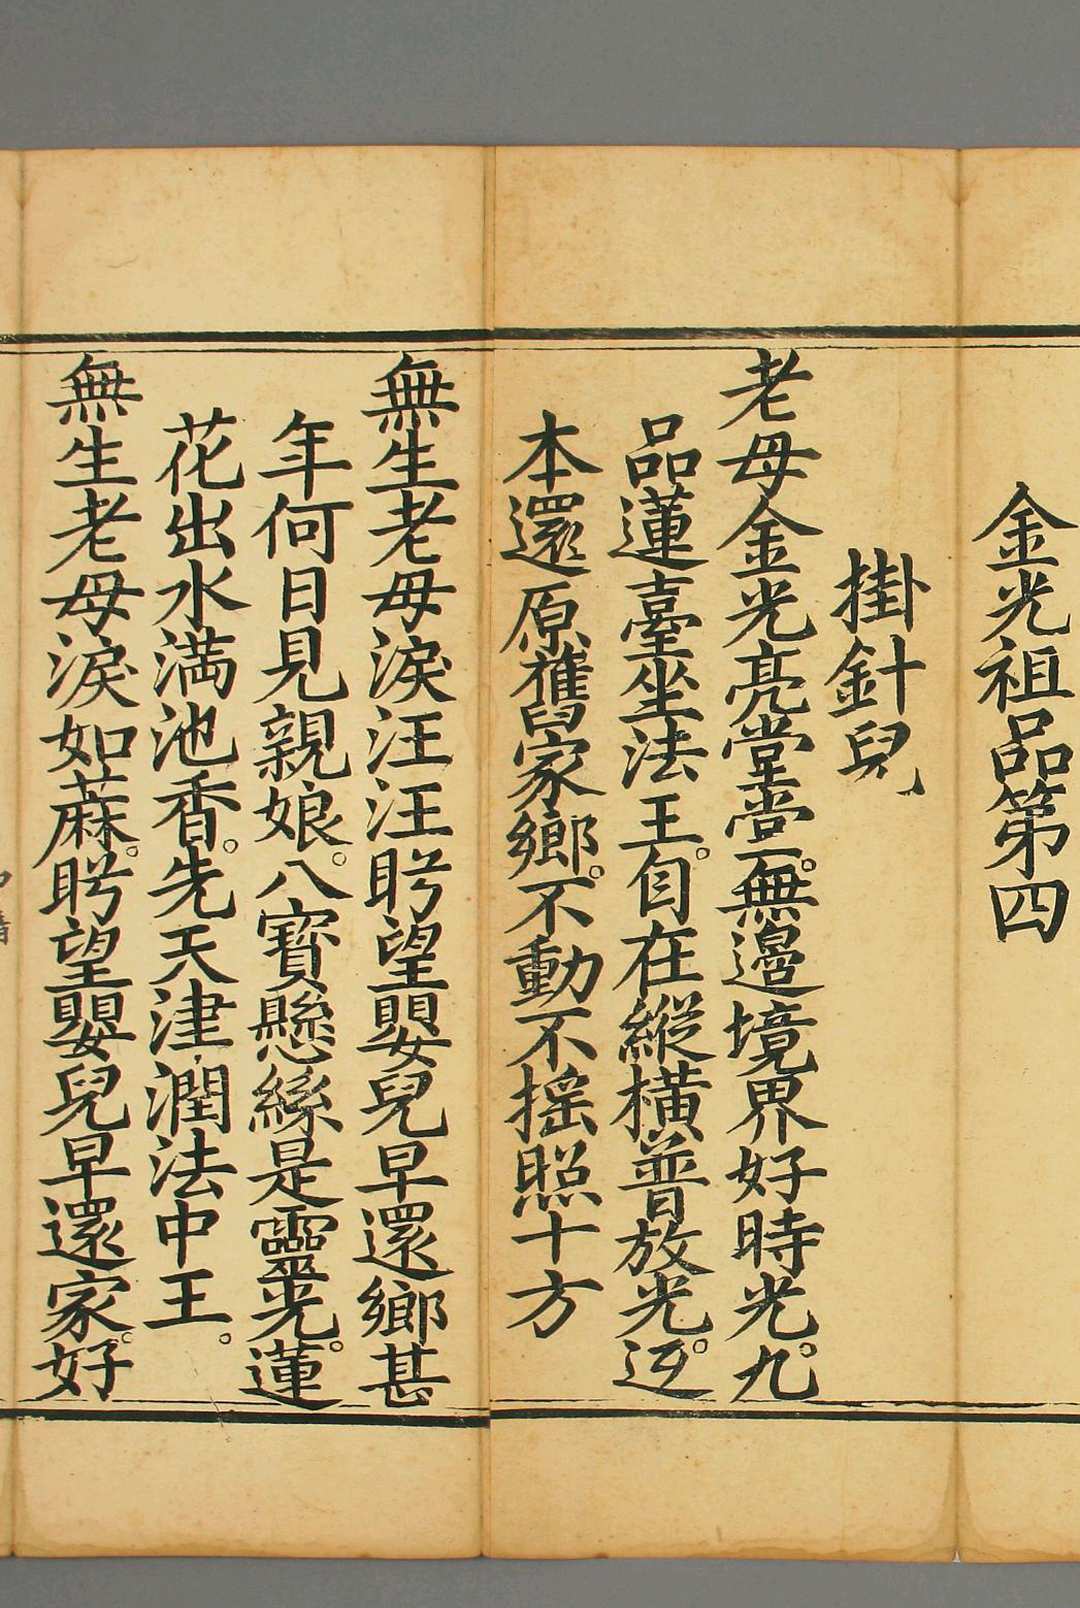 金光祖品第四
掛針兒
老母金光亮堂堂。無邊境界好時光。九
品蓮臺坐法王。自在縱橫普放光。返
本還原舊家鄉。不動不搖照十方
無生老母淚汪汪盻望嬰兒早還鄉甚
年何日見親娘。八寶懸絲是靈光。蓮
花出水滿池香。先天津潤法中王。
無生老母淚如蔴。盻望嬰兒早還家。好